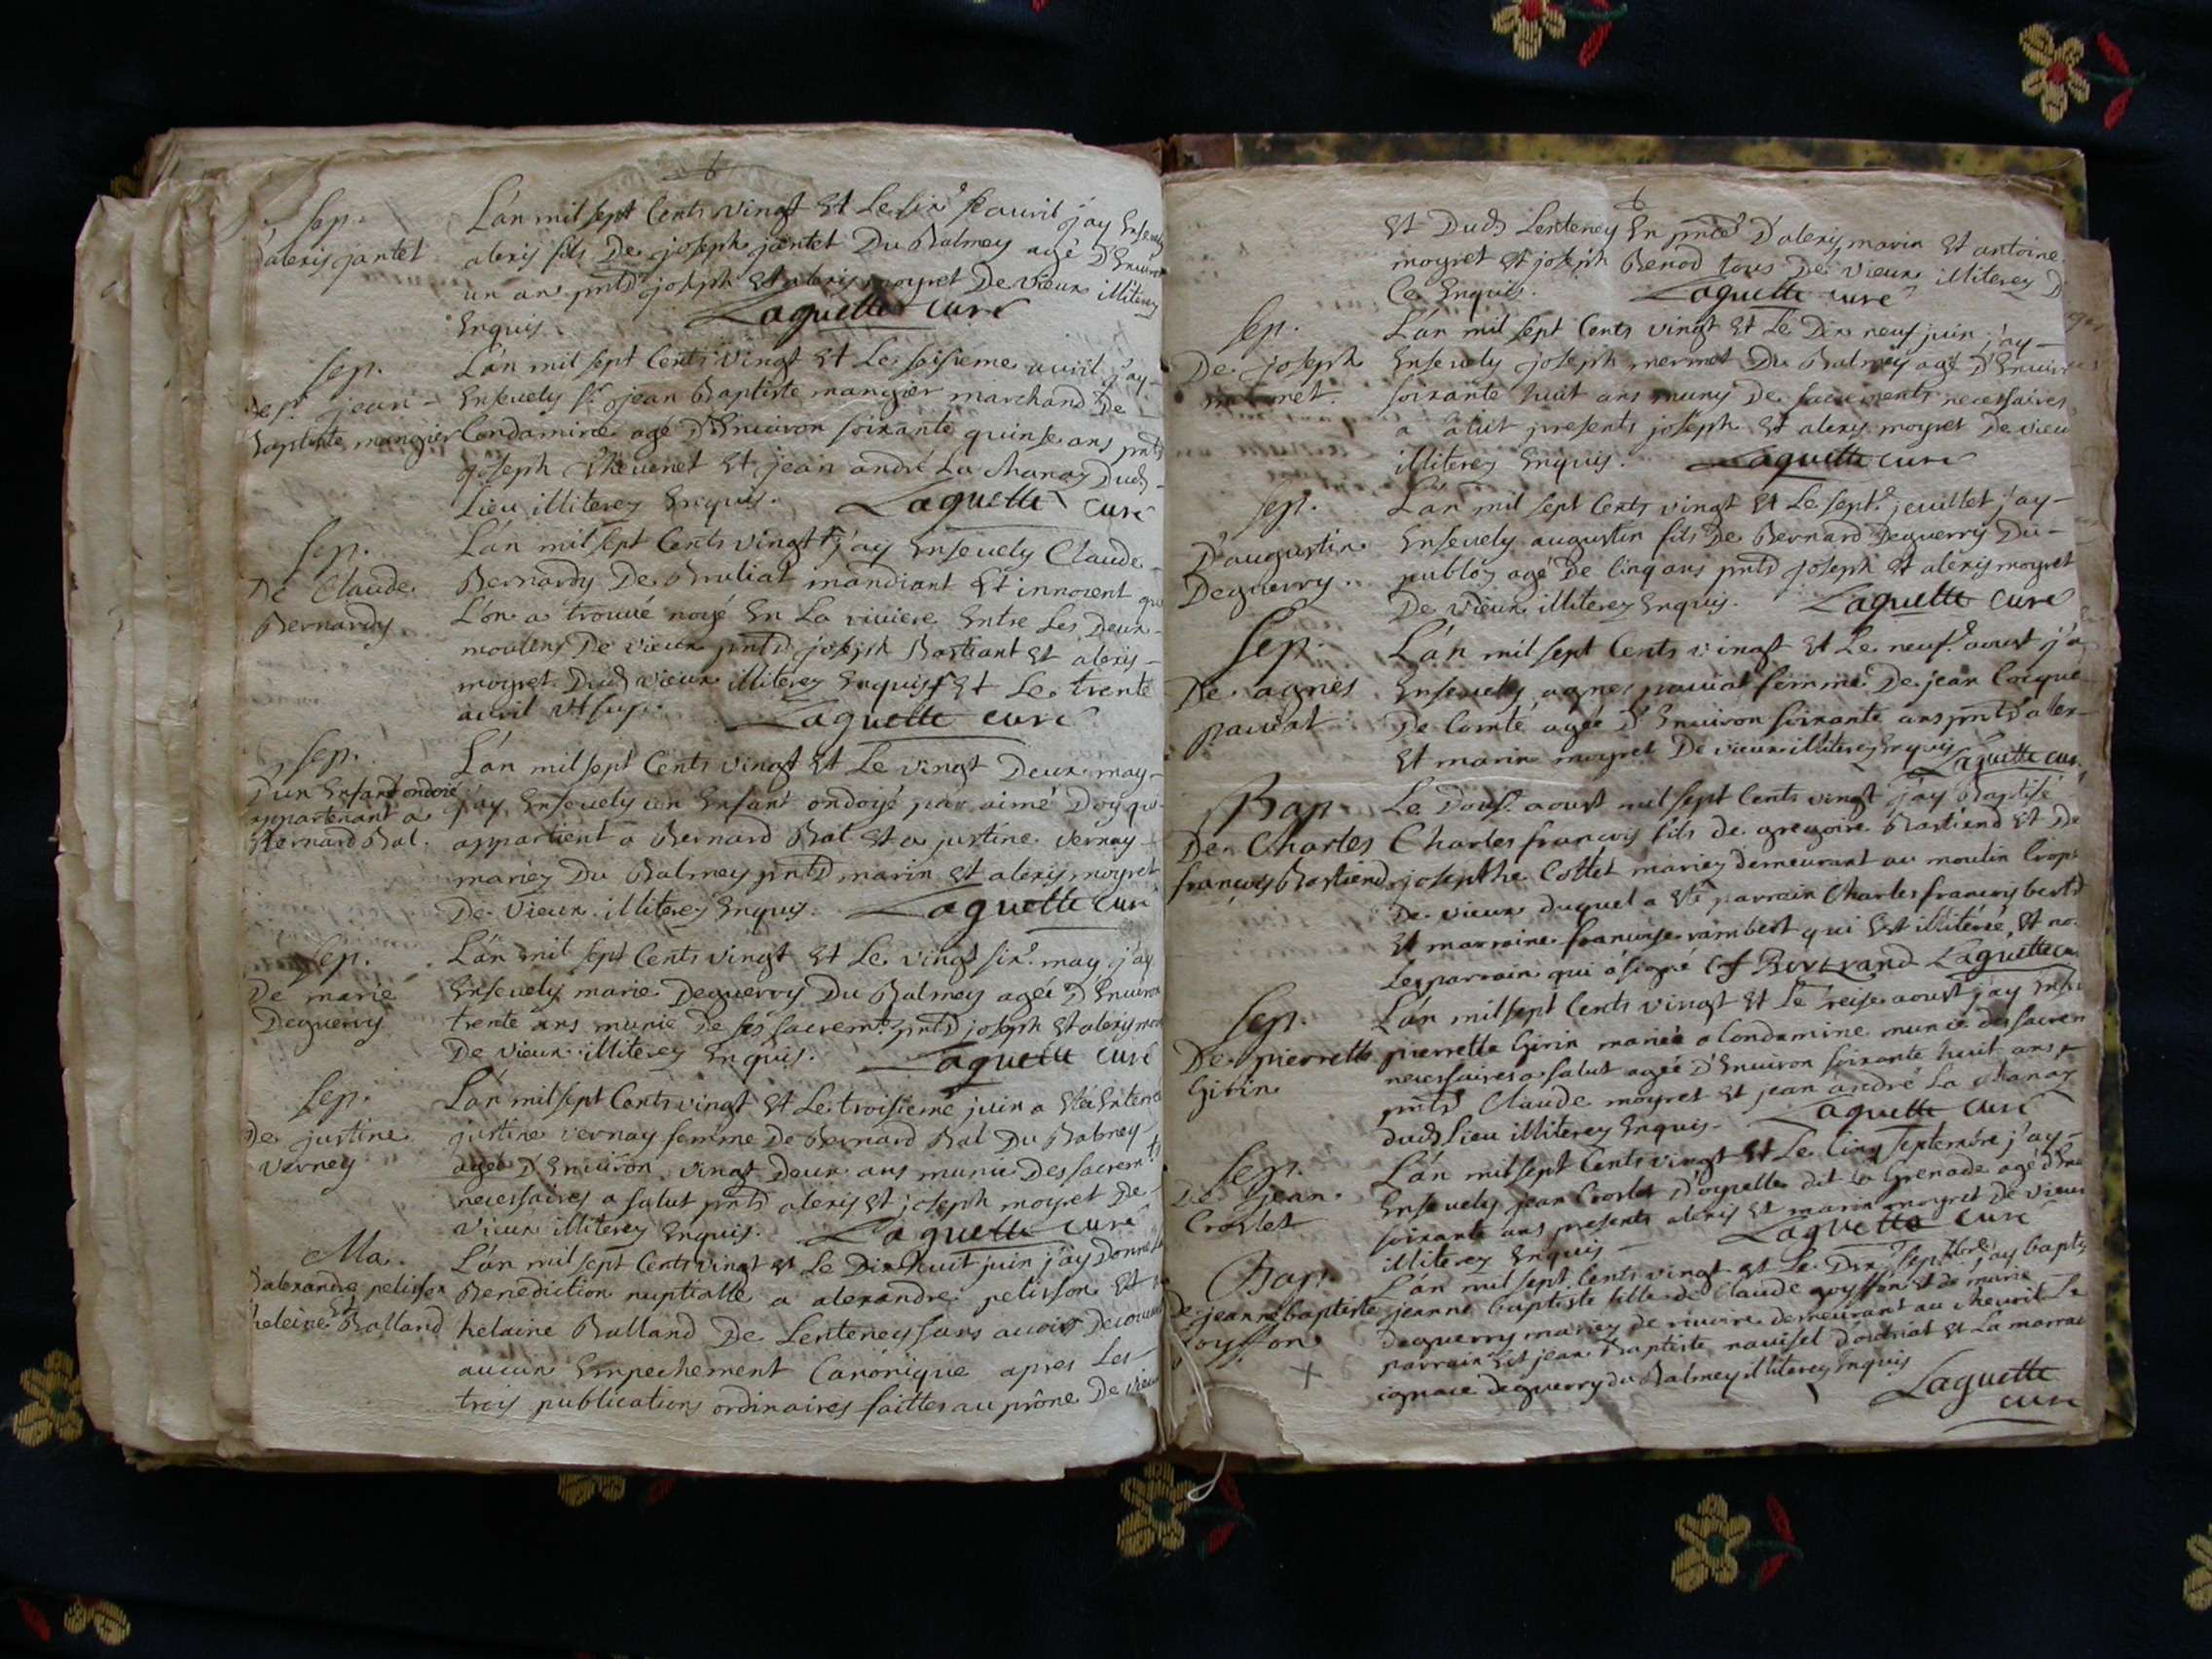 Sep.
d'alexis jantet
L'an mil sept Cents vingt Et Le six.e avril j'ay Ensevely
alexis fils De joseph jantet Du Balmey agé D'Environ
un an pntd joseph Et alexis moyret De vieux illiterez
Enquis. Laguette curé
Sep.
de Sr. jean
baptiste mangier
L'an mil sept Cents vingt Et Le seisieme avril j'ay
Ensevely Sr. jean Baptiste mangier marchand De
Condamine agé D'Environ soixante quinse ans pntd
joseph Thevenet Et jean andré La Chanay Dud
Lieu illiterez Enquis. Laguette curé
Sep.
De Claude
Bernardy
L'an mil sept Cents vingt j'ay Ensevely Claude
Bernardy De Bruliat mandiant Et innocent que
L'on a trouvé noyé En La riviere Entre Les Deux
moulens De vieux pntd joseph Bastiant Et alexis
moyret Dud vieux illiterez Enquis Et Le trente
avril Vt sup. Laguette curé
Sep.
D'un Enfant ondoié
appartenant a
Bernard Bal.
L'an mil sept Cents vingt Et Le vingt Deux may
j'ay Ensevely un Enfant ondoyé par aimé Doy qui
appartient a Bernard Bal Et a justine vernay
mariez Du Balmey pntd marin Et alexis moyret
De vieux illiterez Enquis. Laguette curé
Sep.
De marie
Deguerry
L'an mil sept Cents vingt Et Le vingt six.e may j'ay
Ensevely marie Deguerry Du Balmey agée D'Environ
trente ans munie De ses sacremts pntd joseph Et alexis
De vieux illiterez Enquis. Laguette curé
Sep.
De justine
verney
L'an mil sept Cents vingt Et Le troisieme juin a Eté Enterré
justine vernay femme De Bernard Bal Du Balmey
agée D'Environ vingt Deux ans munie Des sacremts
necessaires a salut pntd alexis Et joseph moyret De
vieux illiterez Enquis. Laguette curé
Ma.
D'alexandre pelisson
Et
heleine Balland
L'an mil sept Cents vingt Et Le Dix huit juin j'ay Donné La
Benediction nuptialle a alexandre pelisson Et
helaine Balland De Lenteney sans avoir Decouvert
aucun Empechement Canonique apres Les
trois publications ordinaires faittes au prône De vieux
Et Dud Lenteney En pnce D'alexis, marin Et antoine
moyret Et joseph Benod tous De vieux illiterez D
Ce Enquis. Laguette curé
Sep.
De joseph
mermet.
L'an mil sept Cents vingt Et Le Dix neuf juin j'ay
Ensevely joseph mermet Du Balmey agé D'Environ
soixante huit ans muny De sacrements necessaires
a salut presents joseph Et alexis moyret De vieux
illiterez Enquis. Laguette curé
Sep.
D'augustin
Deguerry.
L'an mil sept Cents vingt Et Le sept.e jeuillet j'ay
Ensevely augustin fils De Bernard Deguerry Du
publoz agé De Cinq ans pntd joseph Et alexis moyret
De vieux illiterez Enquis. Laguette curé
Sep.
De agnes
paviot
L'an mil sept Cents vingt Et Le neuf.e aoust j'a
Ensevely agnes paviot femme De jean Cocque
De Comté agée D'Environ soixante ans pntd alex
Et marin moyret De vieux illiterez Enquis Laguette cur
Bap
De Charles
françois Bastiend
Le Dous.e aoust mil sept Cents vingt j'ay Baptisé
Charles françois fils de gregoire Bastiend Et De
josepthe Cottet mariez demeurant au moulin Crop
De vieux duquel a Eté parrain Charles françois
Et marraine françoise rambert qui Est illiterée, Et no
Le parrain qui a signé Cf Bertrand Laguette cu
Sep.
De pierrette
Girin
L'an mil sept Cents vingt Et Le treise aoust j'ay Ense
pierrette Girin mariée a Condamine munie des sacrem
necessaires a salut agée D'Environ soixante huit ans
pntd Claude moyret Et jean andré La Chanay
dud Lieu illiterez Enquis. Laguette curé
Sep.
De jean
Croslet
L'an mil sept Cents vingt Et Le Cinq septembre j'ay
Ensevely jean Croslet D'oyselle dit La Grenade agé D'En
soixante ans presents alexis Et marin moyret De vieux
illiterez Enquis Laguette curé
Bap.
De jeanne baptiste
Goyffon
X
L'an mil sept Cents vingt et Le Dix.e septbre j'ay bapti
jeanne baptiste fille de Claude goyffon Et de marie
deguerry mariez de riviere demeurant au Chevril Le
parrain Est jean Baptiste ravisel d'oudriat Et La marrai
ignace deguerry du Balmey illiterez Enquis
Laguette
curé